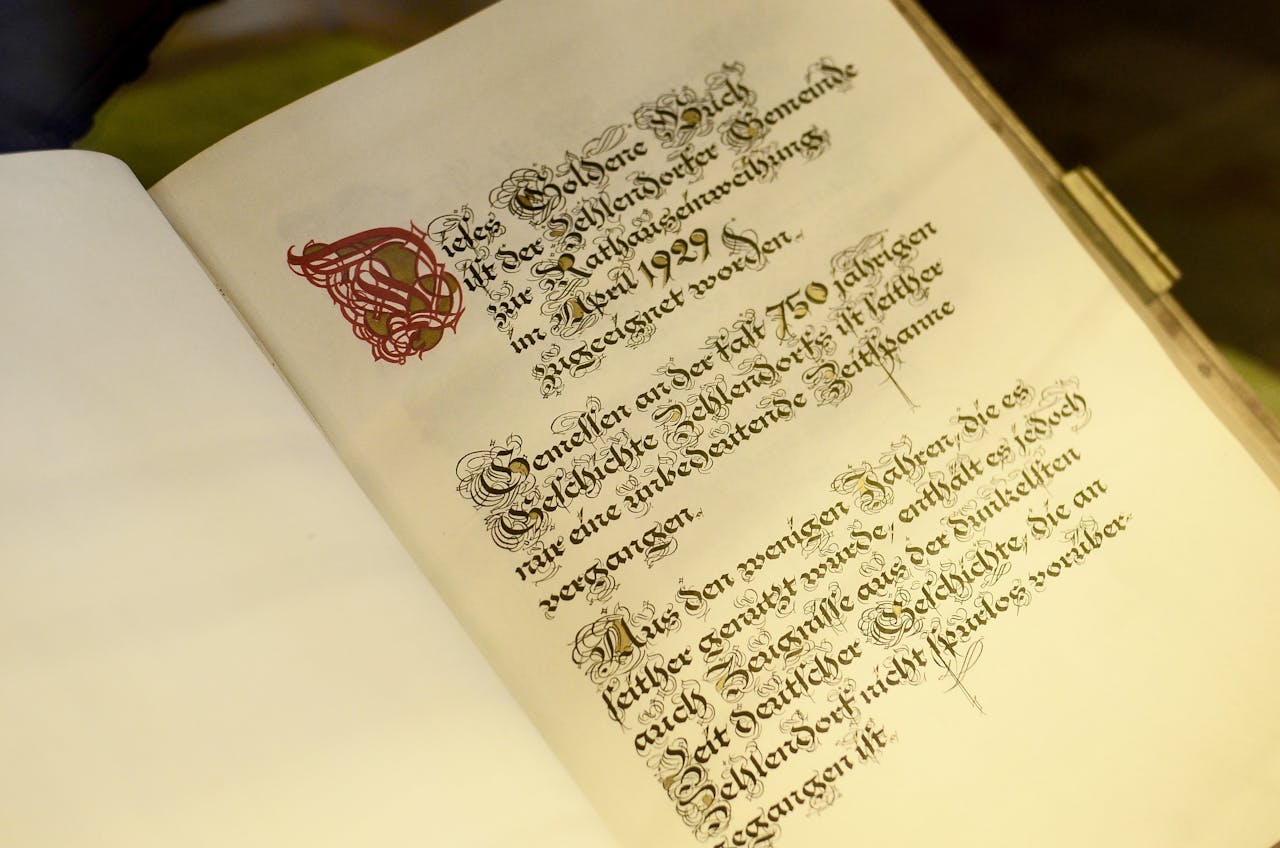 Dieses Goldene Buch
ist der Zehlendorfer Gemeinde
zur Rathauseinweihung
im April 1929 
zugeeignet worden.
Gemessen an der fast 750 jährigen
Geschichte Zehlendorfs ist seither
nur eine unbedeutende Zeitspanne
vergangen.
Aus den wenigen Jahren, die es
seither genutzt wurde, enthält es jedoch
auch Zeugnisse aus der dunkelsten
Zeit deutscher Geschichte, die an
Zehlendorf nicht spurlos vorüber
gegangen ist.